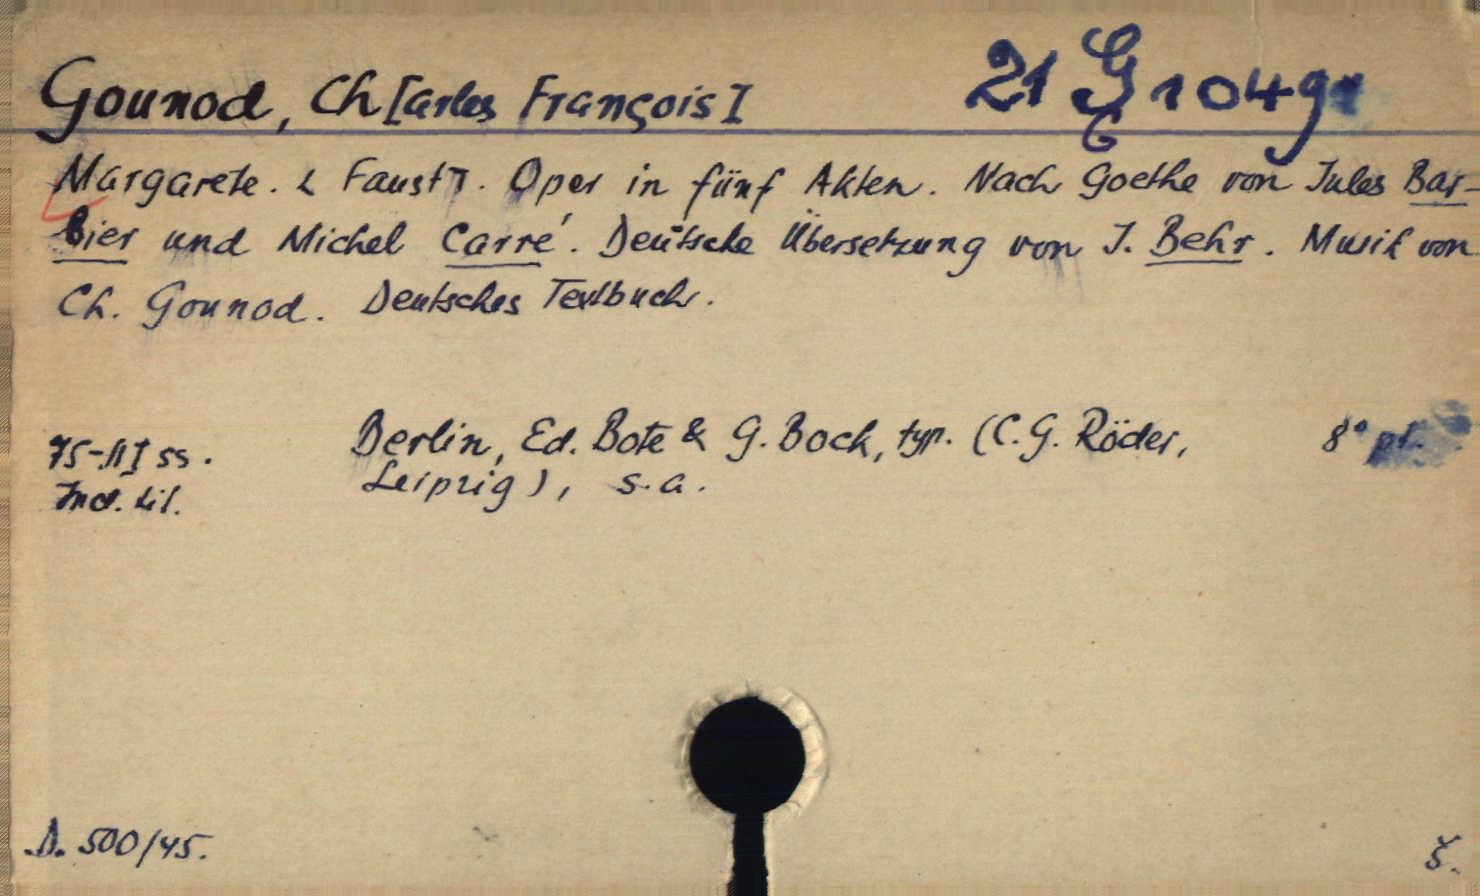 Gounod, Ch[arles François] 21 G 10491
Margarete. < Faust >. Oper in fünf Akten. Nach Goethe von Jules Bar-
bier und Michel Carré. Deutsche Übersetzung von J. Behr. Musik von
Ch. Gounod. Deutsches Textbuch.
Berlin, Ed. Bote & G. Bock, typ. (C.G. Röder, 8°
75-II ss. Leipzig), s.a.
Ind. lit.
D. 500/45. Š.